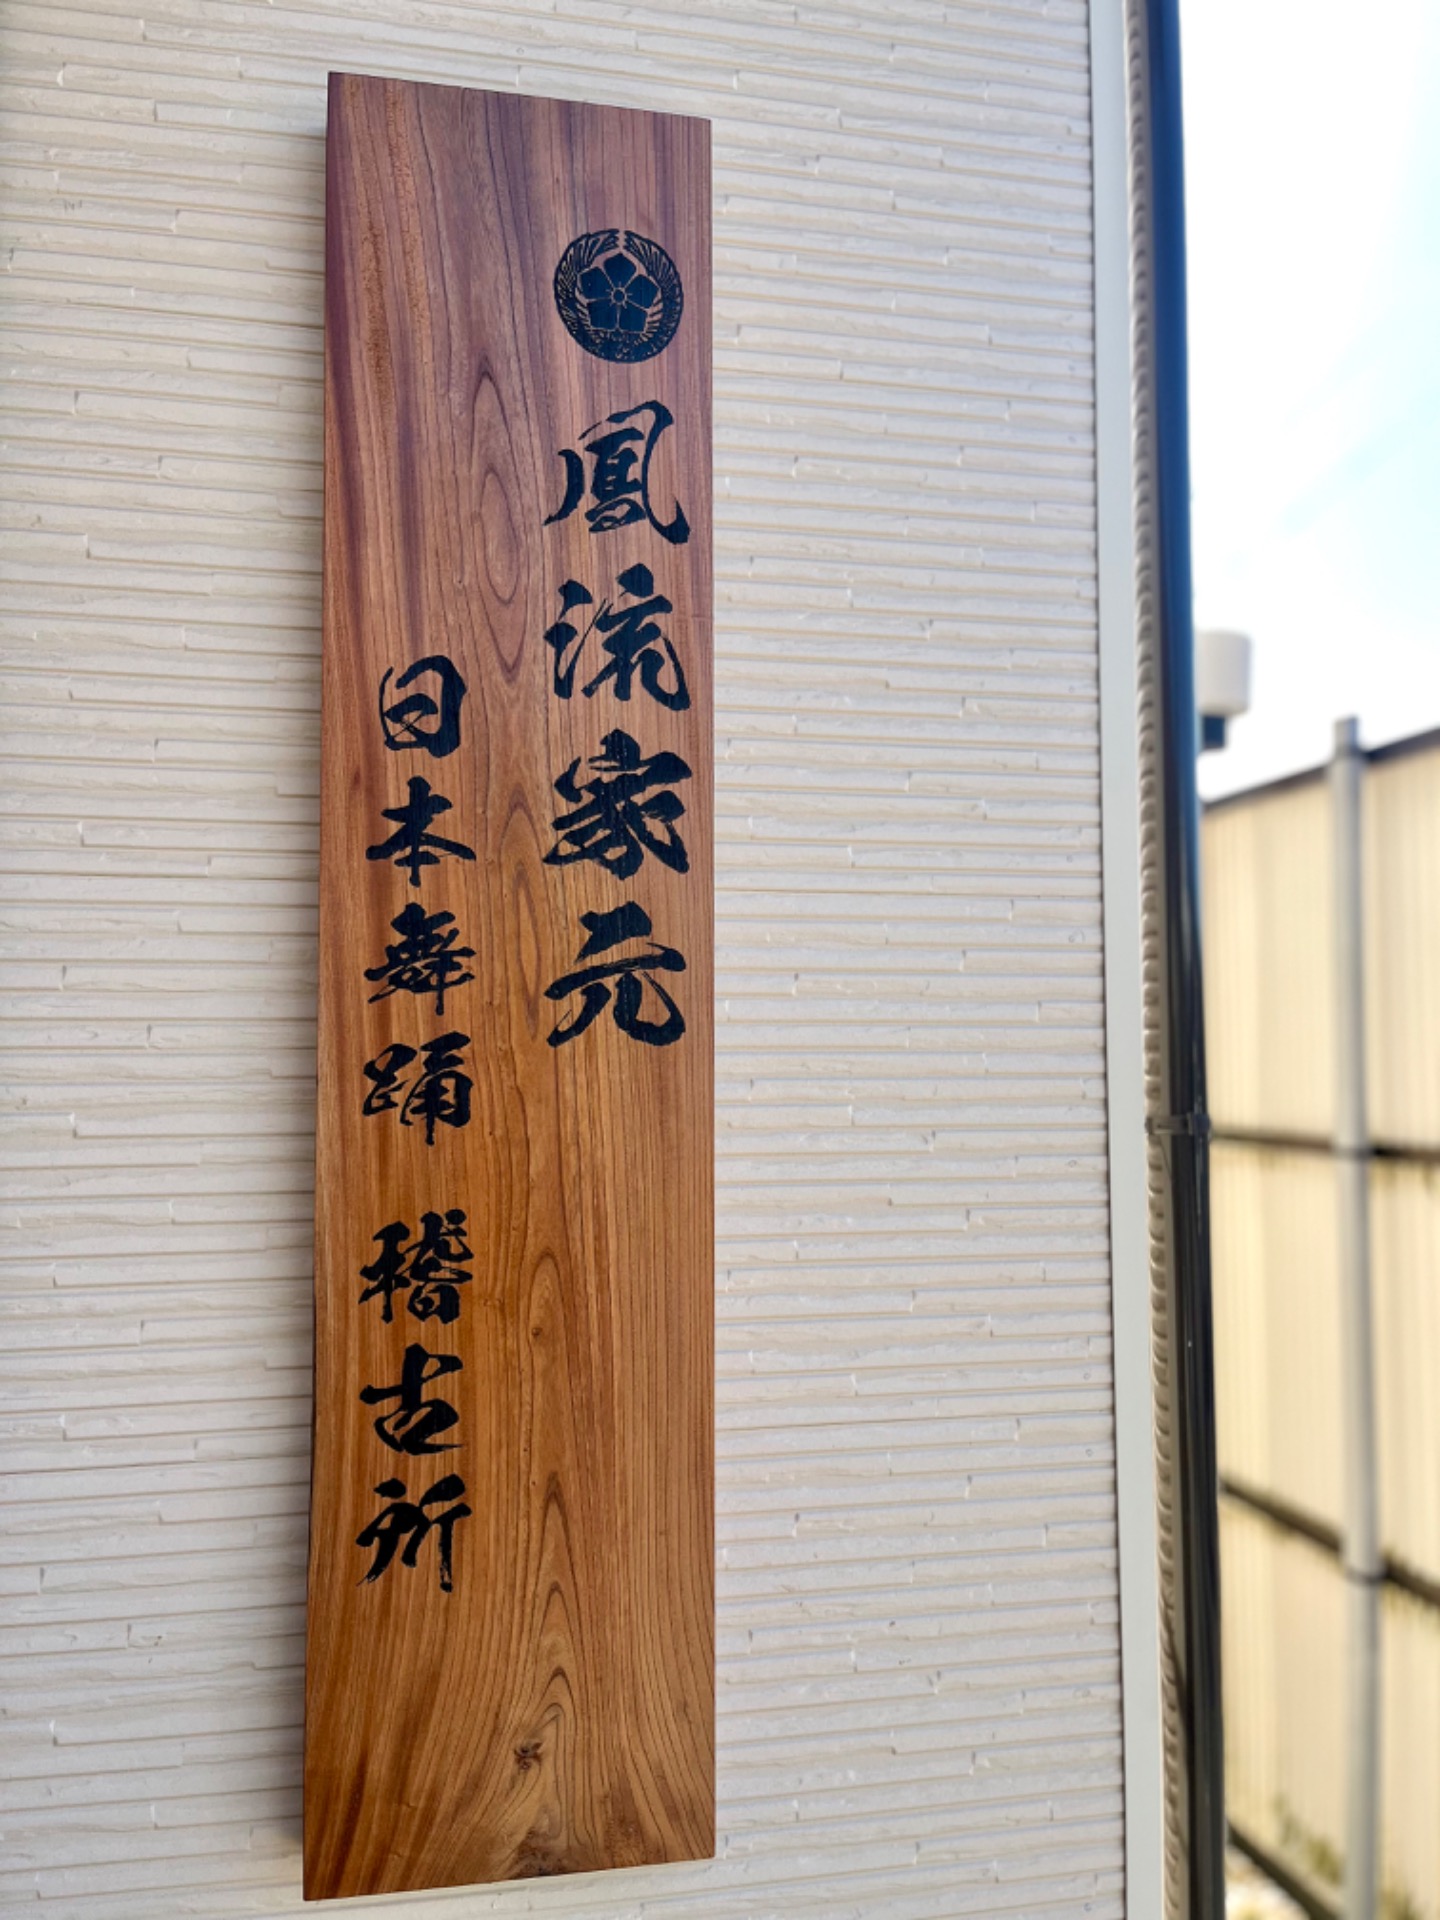 鳳流家元
日本舞踊 稽古所